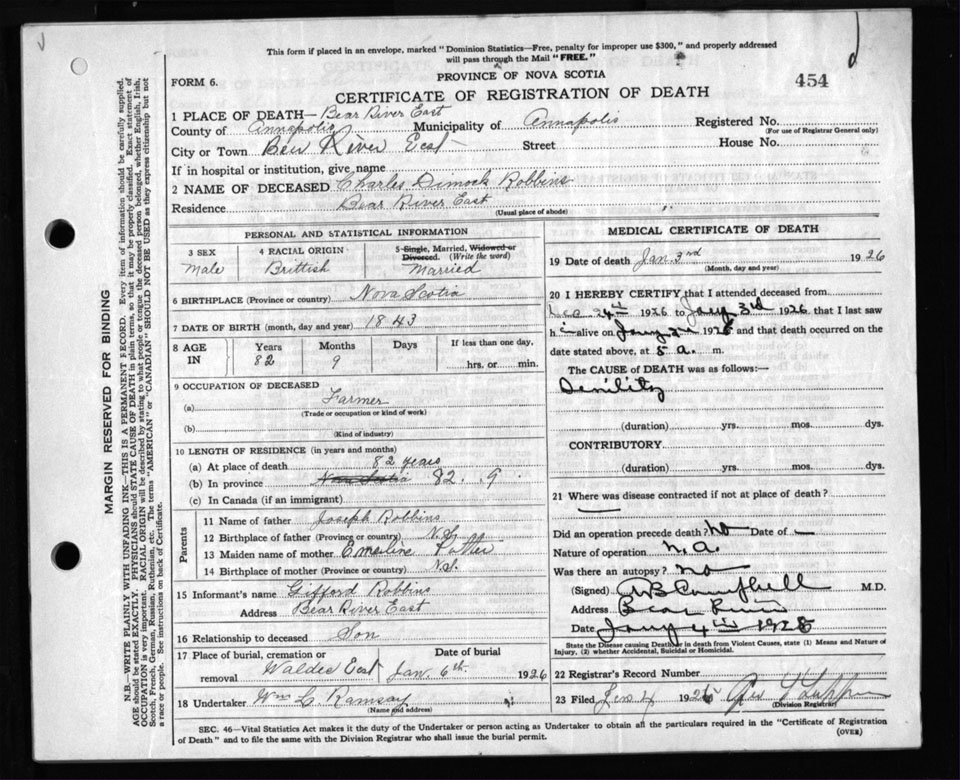 This form if placed in an envelope, marked "Dominion Statistics—Free, penalty for improper use $300," and properly addressed
will pass through the Mail "FREE."
PROVINCE OF NOVA SCOTIA
FORM 6.
454
CERTIFICATE OF REGISTRATION OF DEATH
1 PLACE OF DEATH— Bear River East
County of Annapolis Municipality of Annapolis Registered No.
(For use of Registrar General only)
City or Town Bear River East Street House No.
If in hospital or institution, give name
2 NAME OF DECEASED Charles Dimock Robbins
Residence Bear River East
(Usual place of abode)
PERSONAL AND STATISTICAL INFORMATION
3 SEX 4 RACIAL ORIGIN 5 Single, Married, Widowed or Divorced. (Write the word)
Male Brittish Married
6 BIRTHPLACE (Province or country) Nova Scotia
7 DATE OF BIRTH (month, day and year) 1843
8 AGE IN Years Months Days If less than one day,
82 9 hrs. or min.
9 OCCUPATION OF DECEASED
(a) Farmer
(Trade or occupation or kind of work)
(b)
(Kind of industry)
10 LENGTH OF RESIDENCE (in years and months)
(a) At place of death 82 years
(b) In province Nova Scotia 82 . . 9 .
(c) In Canada (if an immigrant)
Parents
11 Name of father Joseph Robbins
12 Birthplace of father (Province or country) N.S.
13 Maiden name of mother Emerline Potter
14 Birthplace of mother (Province or country) N.S.
15 Informant's name Gifford Robbins
Address Bear River East
16 Relationship to deceased Son
17 Place of burial, cremation or Date of burial
removal Waldec East Jan. 6th. 1926
18 Undertaker Wm C. Ramsay
(Name and address)
MEDICAL CERTIFICATE OF DEATH
19 Date of death Jan. 3rd 1926
(Month, day and year)
20 I HEREBY CERTIFY that I attended deceased from
24th 1926 to Jany 3rd 1926, that I last saw
h i alive on Jany 3rd 1926 and that death occurred on
date stated above, at 5 a. m.
The CAUSE OF DEATH was as follows:—
Senility
(duration) yrs. mos. dys.
CONTRIBUTORY
(duration) yrs. mos. dys.
21 Where was disease contracted if not at place of death?
Did an operation precede death? No Date of —
Nature of operation N.A.
Was there an autopsy? No
(Signed) Campbell M.D.
Address Bear River
Date Jany 4th 1926
State the Disease causing Death, or in death from Violent Causes, state (1) Means and Nature of
Injury, (2) whether Accidental, Suicidal or Homicidal.
22 Registrar's Record Number
23 Filed Jan 4 1926
(Division Registrar)
SEC. 46—Vital Statistics Act makes it the duty of the Undertaker or person acting as Undertaker to obtain all the particulars required in the "Certificate of Registration
of Death" and to file the same with the Division Registrar who shall issue the burial permit.
(OVER)
MARGIN RESERVED FOR BINDING
N.B.—WRITE PLAINLY WITH UNFADING INK—THIS IS A PERMANENT RECORD. Every item of information should be carefully supplied.
AGE should be stated EXACTLY. PHYSICIANS should STATE CAUSE OF DEATH in plain terms, so that it may be properly classified. Exact statement of
OCCUPATION is very important. RACIAL ORIGIN will be described by stating to what people or tongue the deceased person belonged, whether English, Irish,
Scotch, French, German, Russian, Ruthenian, etc. The terms "AMERICAN" or "CANADIAN" SHOULD NOT BE USED as they express citizenship but not
a race or people. See instructions on back of Certificate.